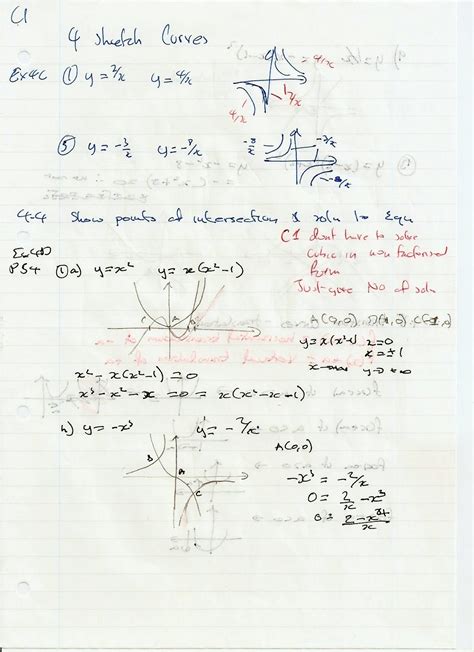 C1
4 Sketch Curves
Ex4C ① y = 2/x y = 4/x
= 4/x
4/x 2/x
⑤ y = -3/x y = -8/x
-3/x
-8/x
4.4 Show points of intersection & soln to Equ
C1 dont have to solve
cubics in non factorised
form
Just give No of soln
Ex4D
P54 ① a) y = x² y = x(x²-1)
A(0,0)
y = x(x²-1) x = 0
x = ±1
x² - x(x²-1) = 0
x³ - x² - x = 0 = x(x² - x - 1)
h) y = -x³ y = -2/x
A(0,0)
B
A
C
-x³ = -2/x
0 = 2/x - x³
0 = 2-x⁴/x